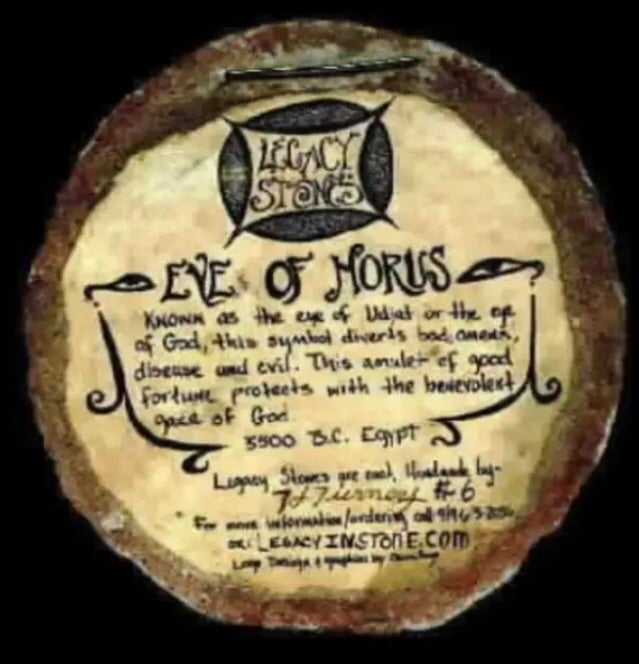 LEGACY
STONES
EYE OF HORUS
KNOWN as the eye of Udjat or the eye
of God, this symbol diverts bad omens,
disease and evil. This amulet of good
fortune protects with the benevolest
gaze of God.
3500 B.C. Egypt
Legacy Stones are each Handmade by-
#6
For more information/ordering call
or: LEGACYINSTONE.COM
Logo Design & graphics by